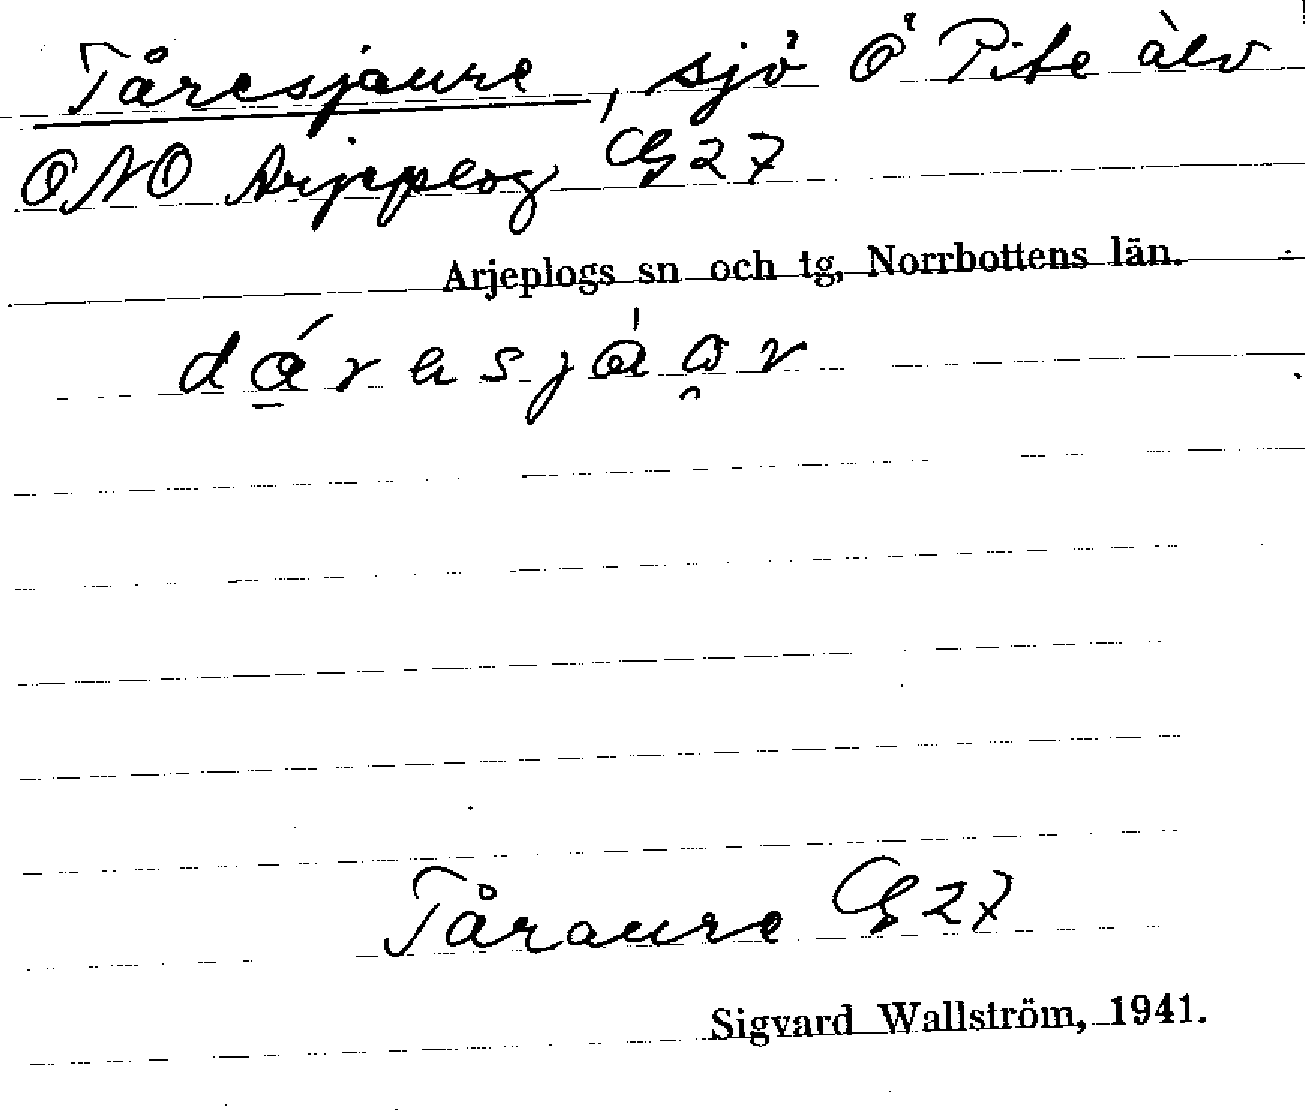 Tåresjaure, sjö Ö Pite älv
ONO Arjeplog G27
Arjeplogs sn och tg, Norrbottens län.
Tåraure G27
Sigvard Wallström, 1941.